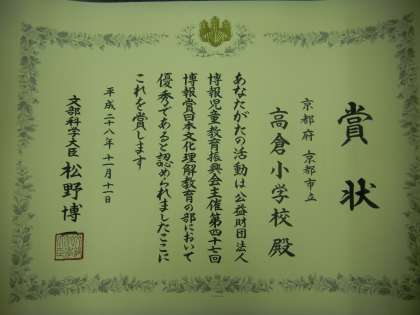 賞状
京都府 京都市立
高倉小学校殿
あなたがたの活動は公益財団法人
博報児童教育振興会主催第四十七回
博報賞日本文化理解教育の部において
優秀であると認められましたここに
これを賞します
平成二十八年十一月十一日
文部科学大臣 松野博